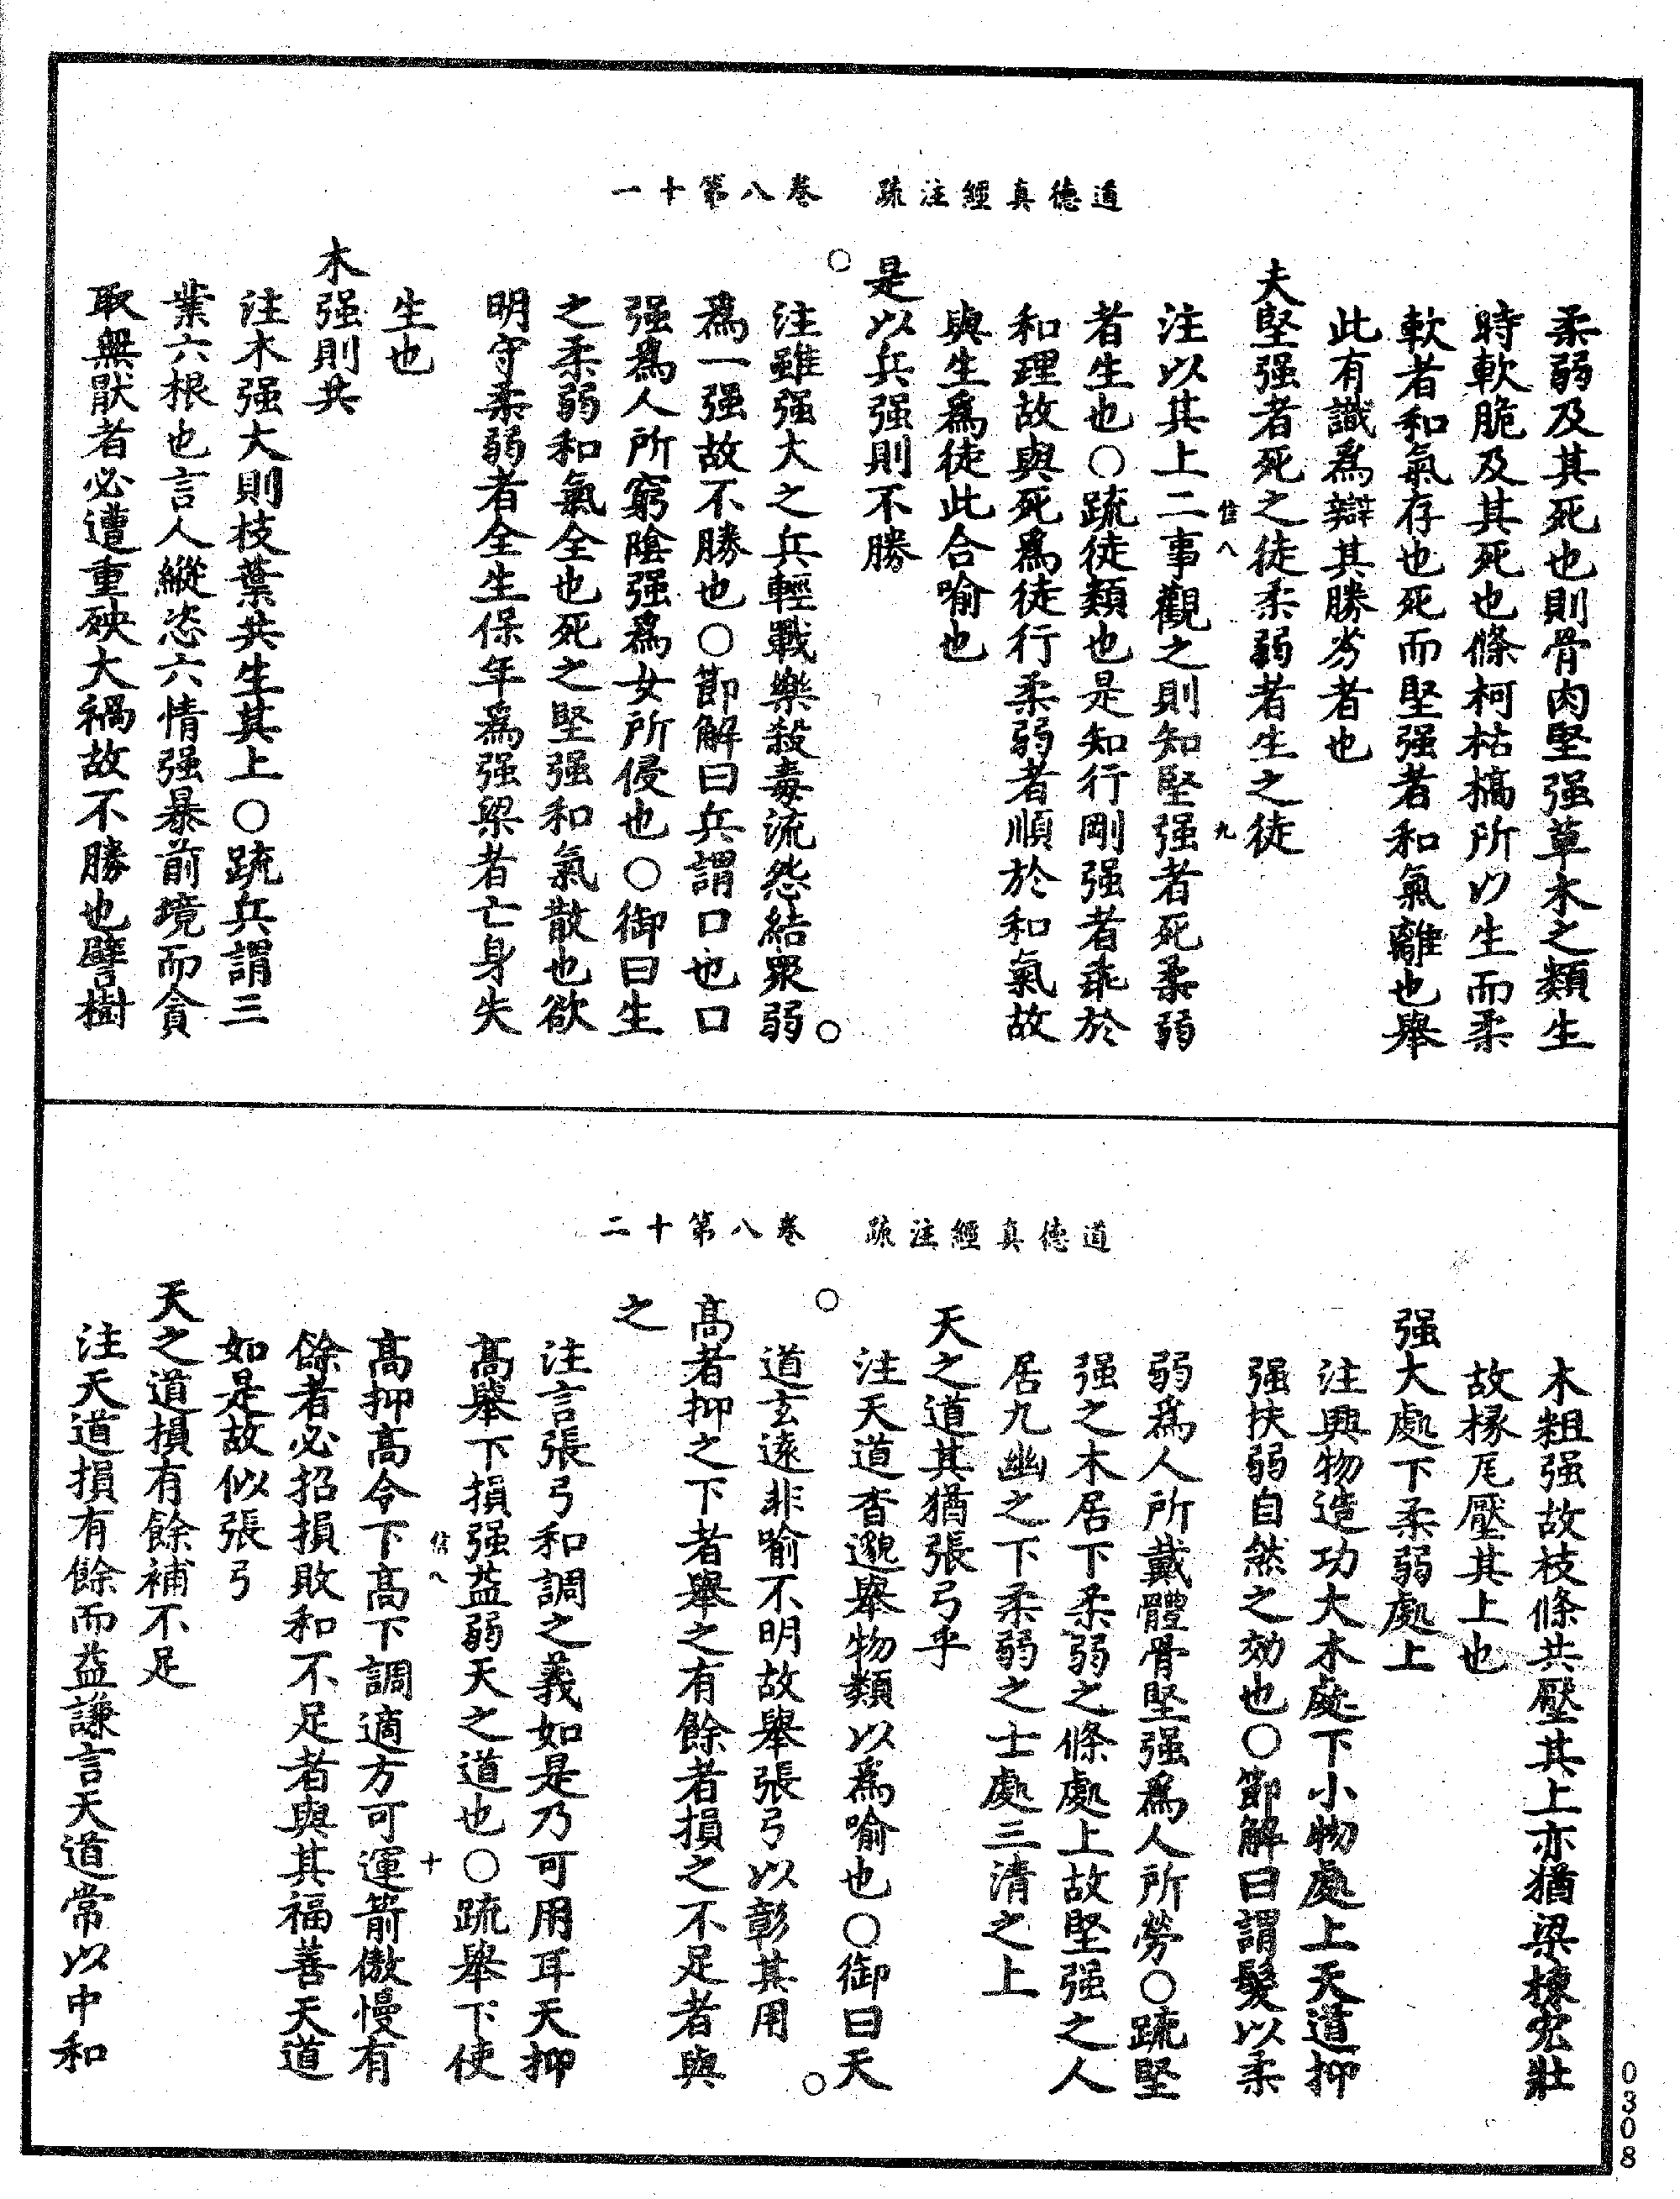 道德真經注疏　卷八第十一
柔弱及其死也則骨肉堅强草木之類生
時軟脆及其死也條柯枯槁所以生而柔
軟者和氣存也死而堅强者和氣離也舉
此有識爲辯其勝劣者也
夫堅强者死之徒柔弱者生之徒
信八　九
注以其上二事觀之則知堅强者死柔弱
者生也○疏徒類也是知行剛强者乖於
和理故與死爲徒行柔弱者順於和氣故
與生爲徒此合喻也
是以兵强則不勝
注雖强大之兵輕戰樂殺毒流怨結衆弱
爲一强故不勝也○節解曰兵謂口也口
强爲人所窮陰强爲女所侵也○御曰生
之柔弱和氣全也死之堅强和氣散也欲
明守柔弱者全生保年爲强梁者亡身失
生也
木强則共
注木强大則枝葉共生其上○疏兵謂三
業六根也言人縱恣六情强暴前境而貪
取無猒者必遭重殃大禍故不勝也譬樹
道德真經注疏　卷八第十二
木粗强故枝條共壓其上亦猶梁棟宏壯
故椽瓦壓其上也
强大處下柔弱處上
注興物造功大木處下小物處上天道抑
强扶弱自然之効也○節解曰謂髮以柔
弱爲人所戴體骨堅强爲人所勞○疏堅
强之木居下柔弱之條處上故堅强之人
居九幽之下柔弱之士處三清之上
天之道其猶張弓乎
注天道杳邈舉物類以爲喻也○御曰天
道玄遠非喻不明故舉張弓以彰其用
高者抑之下者舉之有餘者損之不足者與
之
注言張弓和調之義如是乃可用耳天抑
高舉下損强益弱天之道也○疏舉下使
信八　十
高抑高令下高下調適方可運箭傲慢有
餘者必招損敗和不足者與其福善天道
如是故似張弓
天之道損有餘補不足
注天道損有餘而益謙言天道常以中和
0308